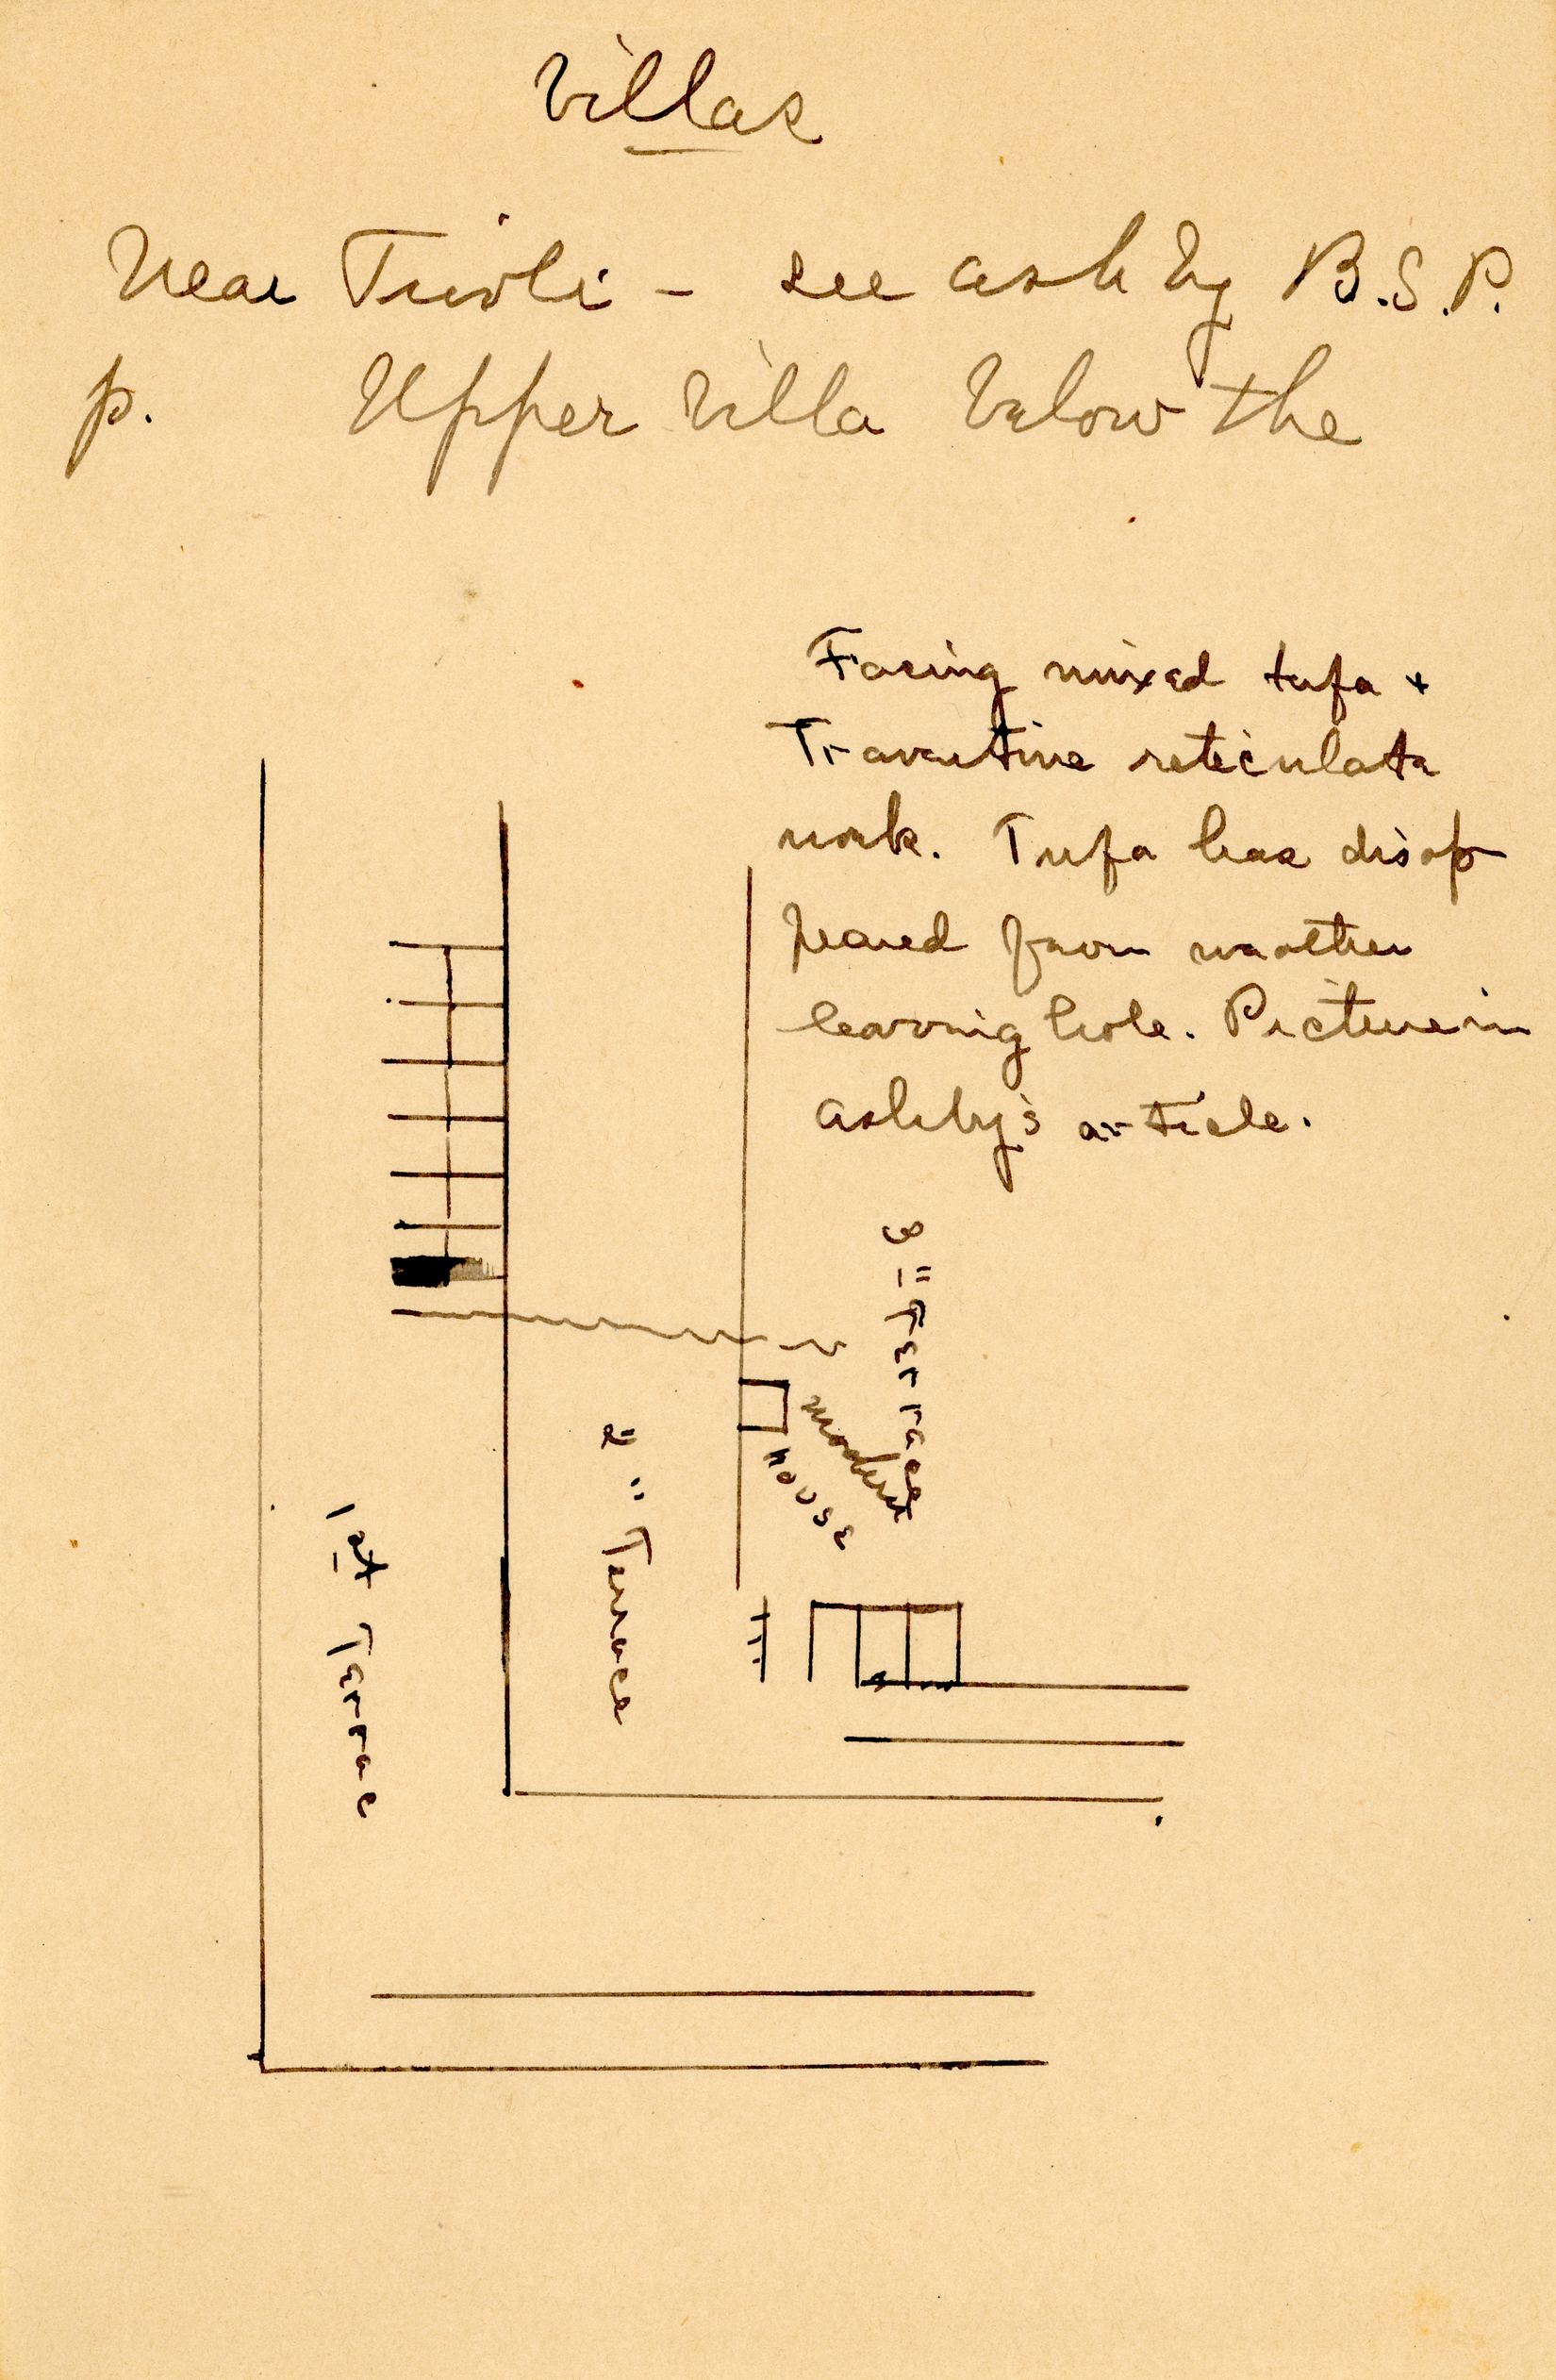 Villas
Near Tivoli - see Ashby B.S.P.
p. Upper Villa below the
Facing mixed tufa +
Travertine reticulata
work. Tufa has disap
peared from weather
leaving hole. Picture in
Ashby's article.
3 " Terrace
modern
House
2 " Terrace
1st Terrac